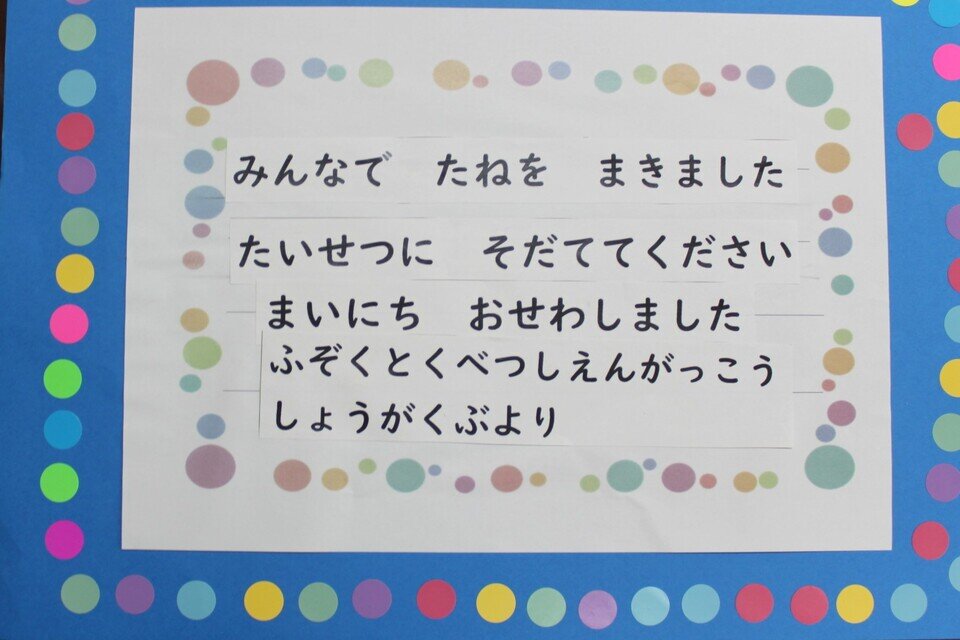 みんなで　たねを　まきました
たいせつに　そだててください
まいにち　おせわしました
ふぞくとくべつしえんがっこう
しょうがくぶより